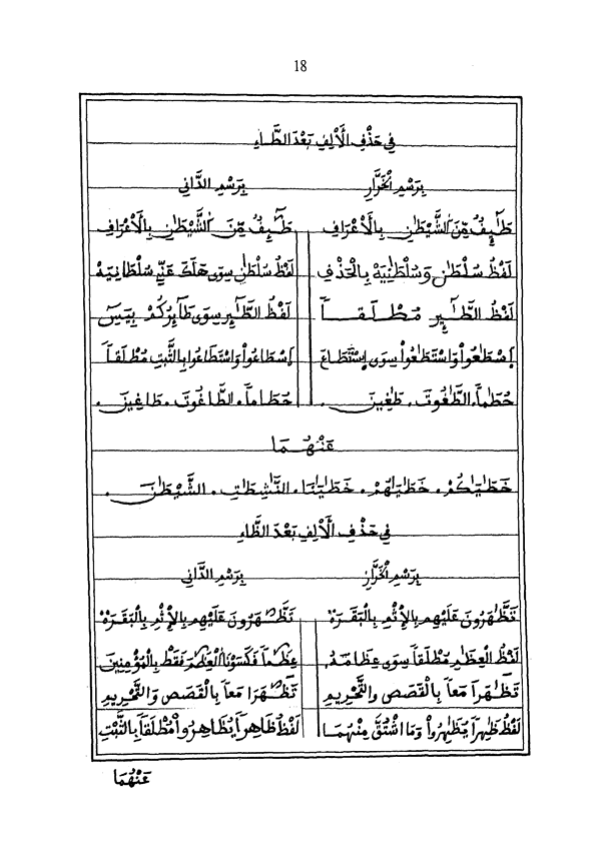 18
في حَذْفِ الْأَلِفِ بَعْدَ الطَّاءِ
بِرَسْمِ الْخَرَّازِ بِرَسْمِ الدَّانِي
طَٰٓئِفٌ مِّنَ الشَّيْطَٰنِ بِالْأَعْرَافِ طَٰٓئِفٌ مِّنَ الشَّيْطَٰنِ بِالْأَعْرَافِ
لَفْظُ سُلْطَٰنٍ وَسُلْطَٰنِيَهْ بِالْحَذْفِ لَفْظُ سُلْطَٰنٍ سِوَى هَلَكَ عَنِّي سُلْطَانِيَهْ
لَفْظُ الطَّٰٓئِرِ مُطْلَقاً لَفْظُ الطَّٰٓئِرِ سِوَى طَآئِرُكُمْ بِيَسٓ
اِسْطَٰعُواْ وَاسْتَطَٰعُواْ سِوَى اِسْتَطَاعَ اِسْطَاعُواْ وَاسْتَطَاعُواْ بِالثَّبْتِ مُطْلَقاً
حُطَٰماً، الطَّٰغُوتَ، طَٰغِينَ. حُطَاماً، الطَّاغُوتَ، طَاغِينَ.
عَنْهُمَا
خَطَٰيَٰكُمْ، خَطَٰيَٰهُمْ، خَطَٰيَٰنَا، النَّٰشِطَٰتِ، الشَّيْطَٰنَ.
في حَذْفِ الْأَلِفِ بَعْدَ الظَّاءِ
بِرَسْمِ الْخَرَّازِ بِرَسْمِ الدَّانِي
تَظَّٰهَرُونَ عَلَيْهِم بِالْإِثْمِ بِالْبَقَرَةِ تَظَّٰهَرُونَ عَلَيْهِم بِالْإِثْمِ بِالْبَقَرَةِ
لَفْظُ الْعِظَٰمِ مُطْلَقاً سِوَى عِظَامَهُ، عِظَٰماً فَكَسَوْنَا الْعِظَٰمَ فَقَطْ بِالْمُؤْمِنِينَ
تَظَّٰهَرَا مَعاً بِالْقَصَصِ وَالتَّحْرِيمِ تَظَّٰهَرَا مَعاً بِالْقَصَصِ وَالتَّحْرِيمِ
لَفْظُ ظَٰهِراً يُظَٰهِرُواْ وَمَا اشْتُقَّ مِنْهُمَا لَفْظُ ظَاهِراً يُظَاهِرُواْ مُطْلَقاً بِالثَّبْتِ
عَنْهُمَا